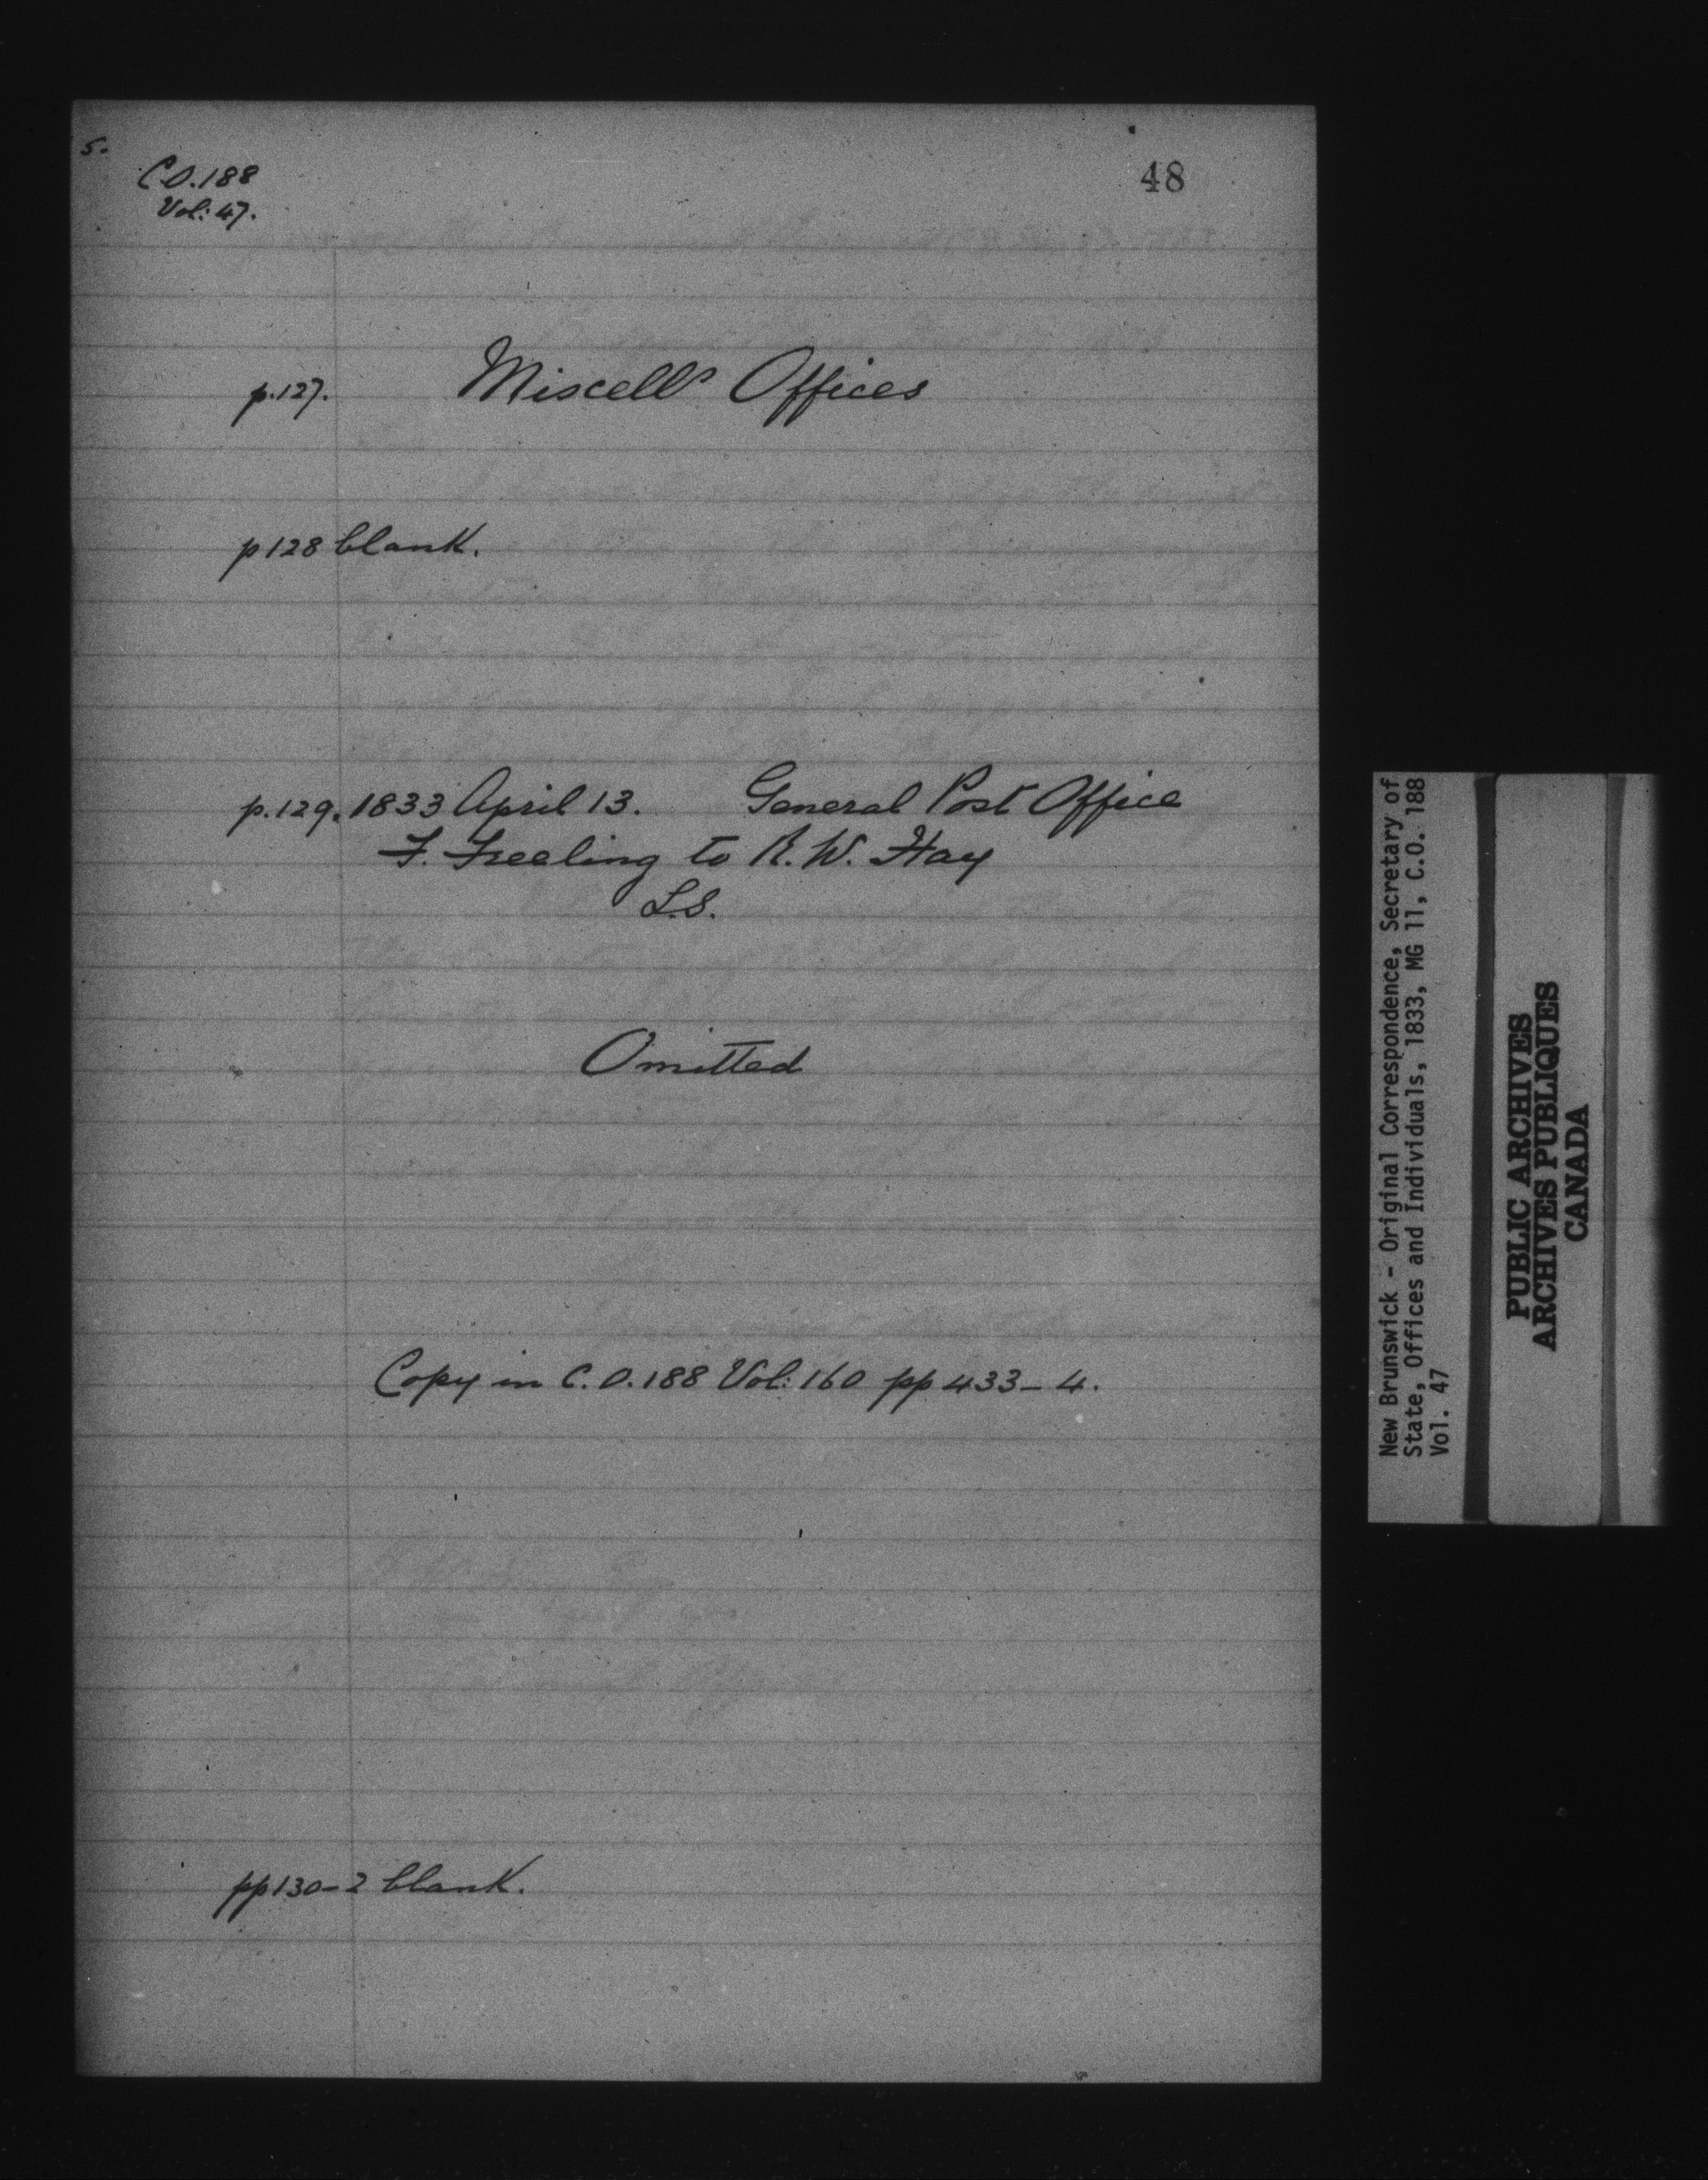 5.
C.O.188
Vol: 47.
48
p.127. Miscells Offices
p128 blank.
p.129. 1833 April 13. General Post Office
F. Freeling to R. W. Hay
L.S.
Omitted
Copy in C.O.188 Vol: 160 pp 433-4.
pp130-2 blank.
New Brunswick - Original Correspondence, Secretary of
State, Offices and Individuals, 1833, MG 11, C.O. 188
Vol. 47
PUBLIC ARCHIVES
ARCHIVES PUBLIQUES
CANADA